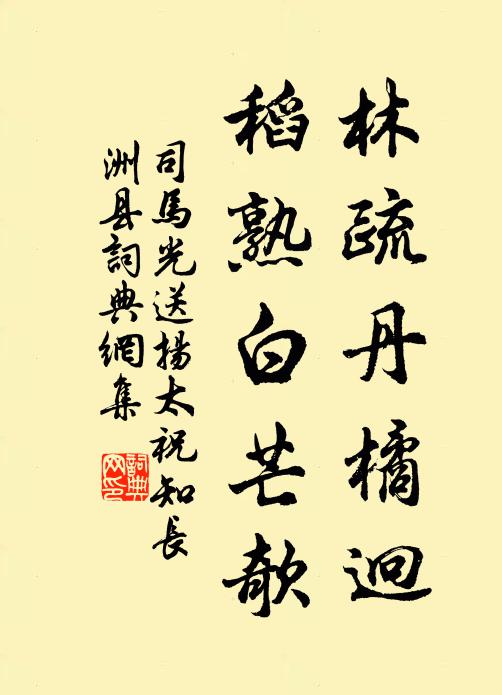 林疏丹橘迥
稻熟白芒欹
司馬光送揚太祝知長
洲县詞典網集
詞典网印